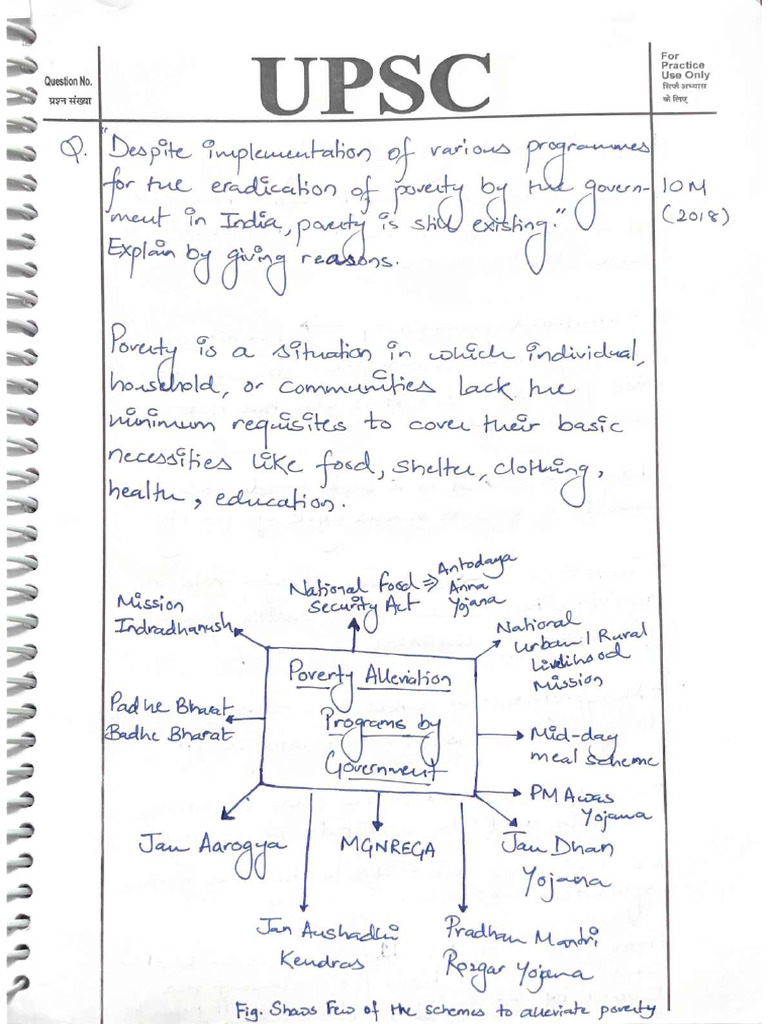 Question No.
प्रश्न संख्या
UPSC
For
Practice
Use Only
सिर्फ अभ्यास
के लिए
Q. "Despite implementation of various programmes
for the eradication of poverty by the govern-
ment in India, poverty is still existing."
Explain by giving reasons.
10M
(2018)
Poverty is a situation in which individual,
household, or communities lack the
minimum requisites to cover their basic
necessities like food, shelter, clothing,
health, education.
National Food
Security Act
⇒ Antodaya
Anna
Yojana
Mission
Indradhanush
National
Urban / Rural
Livelihood
Mission
Poverty Alleviation
Programs by
Government
Padhe Bharat
Badhe Bharat
Mid-day
meal scheme
PM Awas
Yojana
Jan Aarogya
MGNREGA
Jan Dhan
Yojana
Jan Aushadhi
Kendras
Pradhan Mantri
Rozgar Yojana
Fig. Shows Few of the schemes to alleviate poverty